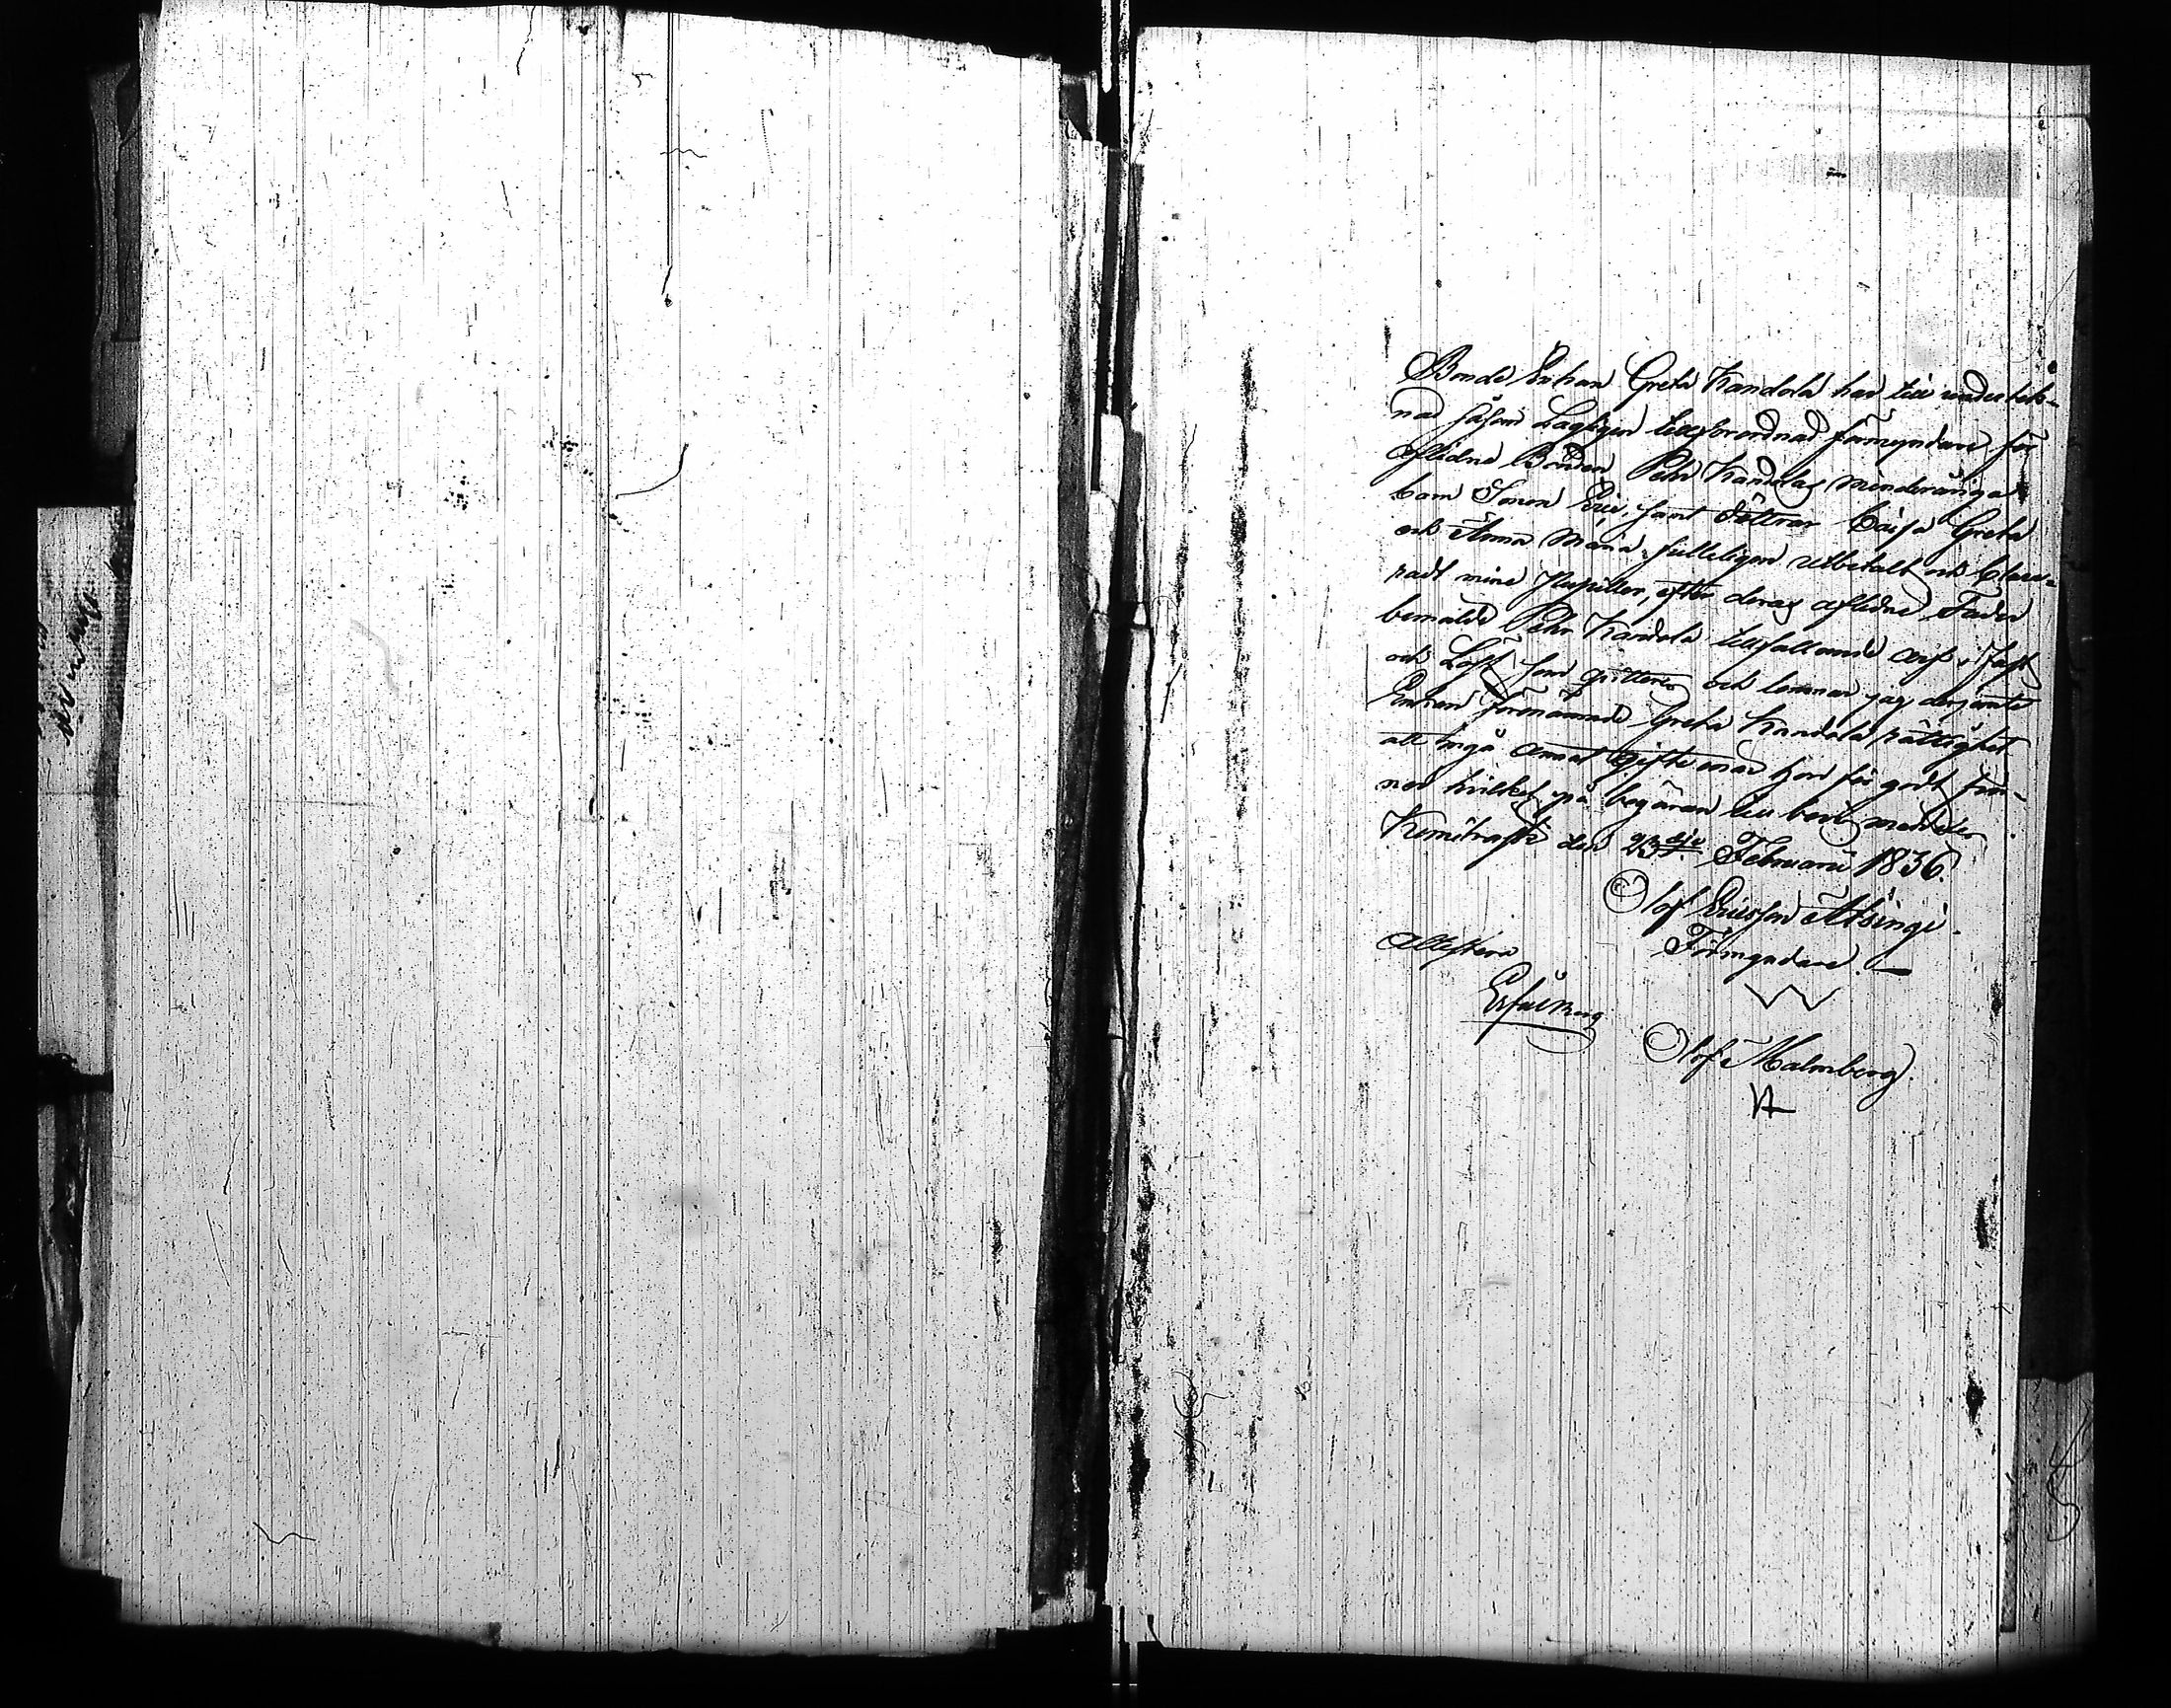 Bonde Enkan Greta Kandola har till underteck-
nad såsom Lagligen tillförordnad förmyndare för
Aflidne Bonden Pehr Kandolas minderåriga
barn Sonen Eric, samt döttrar Caisa Greta
och Anna Maria, fulleligen utbetalt och Clare-
radt mine Pupiller, efter deras aflidne Fader
bemälde Pehr Kandola tillfallande arf i fast
och Löst som quitteras och lemnar jag derjemte
Enkan förenämnde Greta Kandola rättighet
att ingå annat gifte når hon för godt fin-
ner hvilket på begäran till bevis meddelas
Kemiträsk den 23dje Februarii 1836.
Olof Ericsson Atsingi.
Förmyndare.
Attestera
Olof Malmberg.